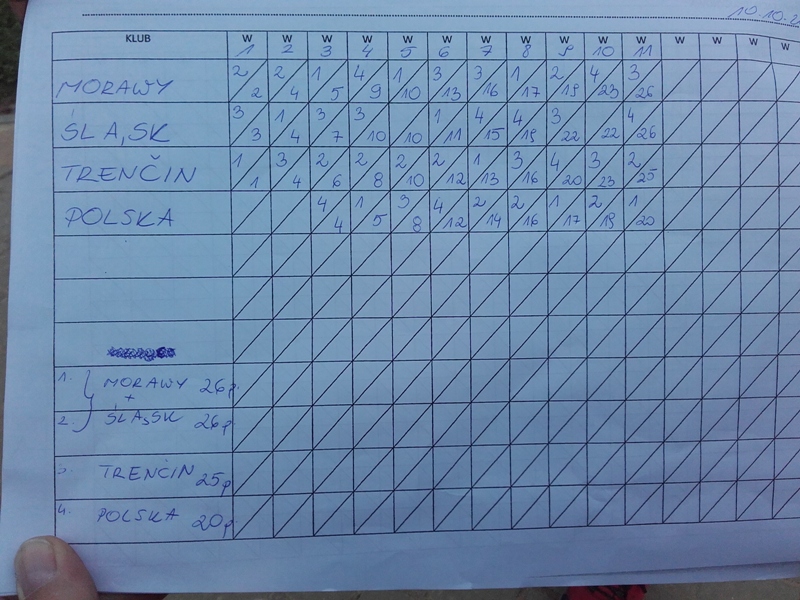 10.10.2
KLUB W 1 W 2 W 3 W 4 W 5 W 6 W 7 W 8 W 9 W 10 W 11 W W W W
MORAWY 2/2 2/4 1/5 4/9 1/10 3/13 3/16 1/17 2/19 4/23 3/26
ŚLĄSK 3/3 1/4 3/7 3/10 /10 1/11 4/15 4/19 3/22 /22 4/26
TRENČIN 1/1 3/4 2/6 2/8 2/10 2/12 1/13 3/16 4/20 3/23 2/25
POLSKA 4/4 1/5 3/8 4/12 2/14 2/16 1/17 2/19 1/20
1. MORAWY 26p.
+
2. ŚLĄSK 26p
3. TRENČIN 25p
4. POLSKA 20p